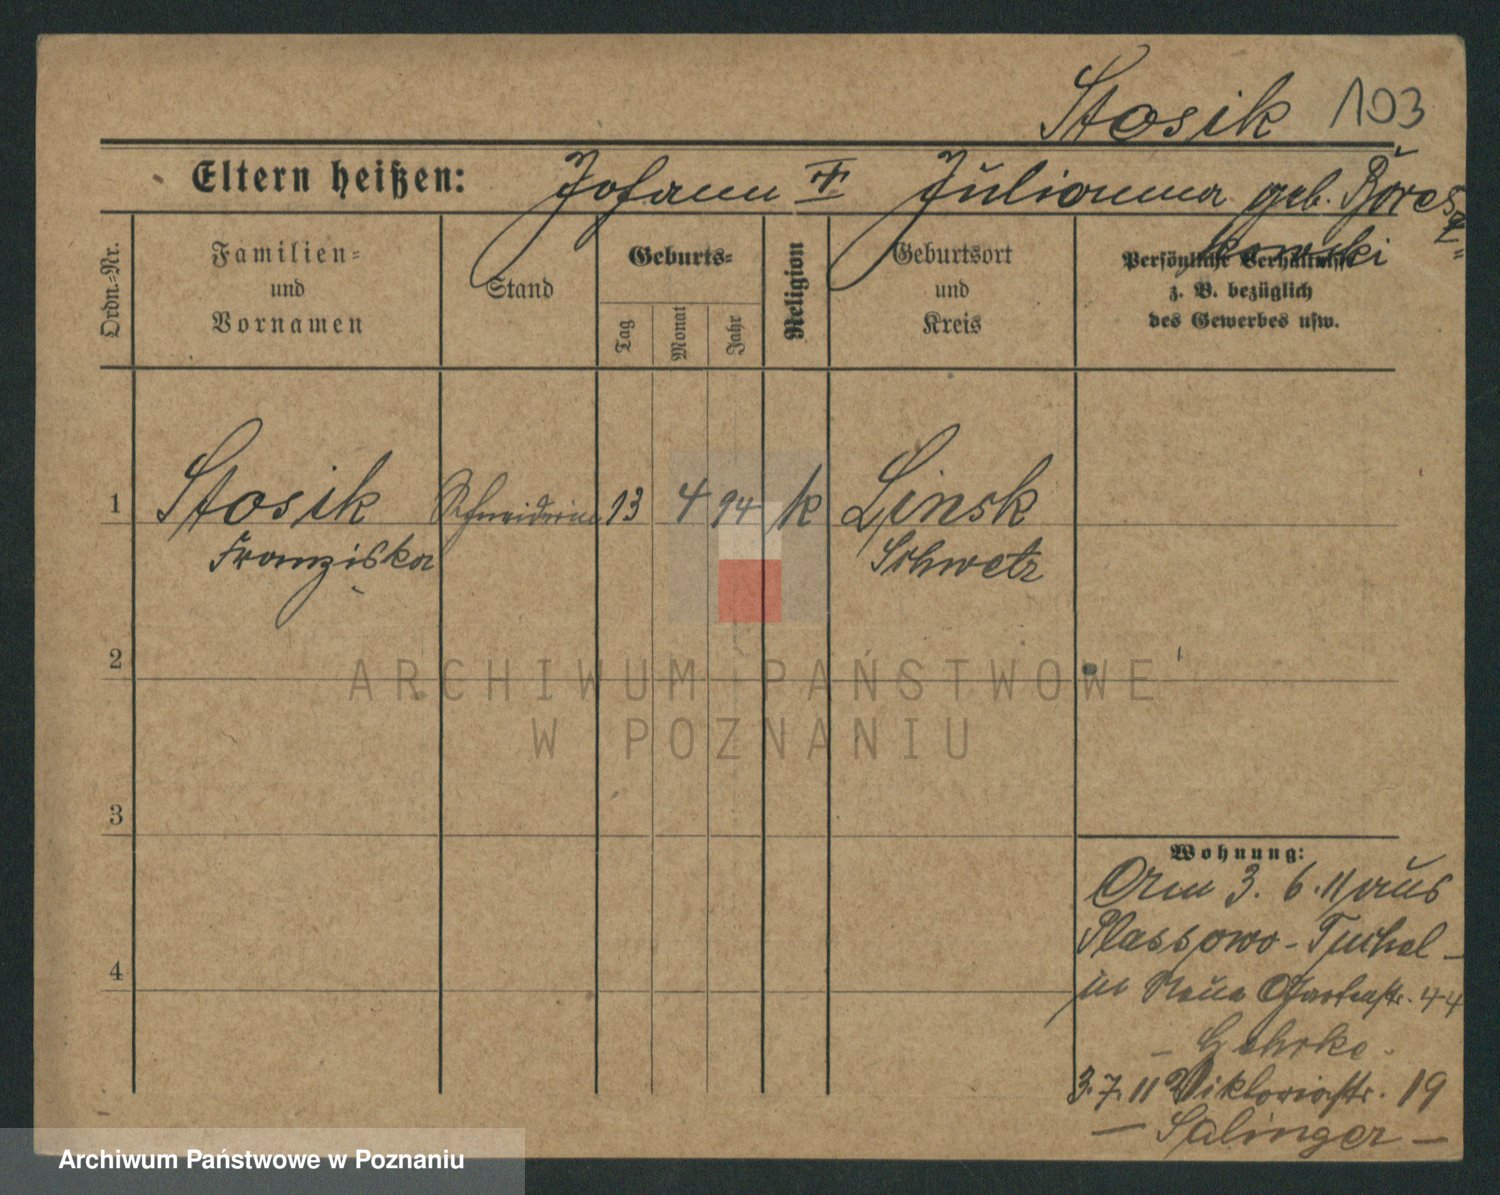 Stosik 103
Eltern heißen: Johann † Julianna geb. Boresz=
kowski
Ordn.-Nr.
Familien=
und
Vornamen
Stand
Geburts=
Tag
Monat
Jahr
Religion
Geburtsort
und
Kreis
Persönliche Verhältnisse
z. B. bezüglich
des Gewerbes usw.
1 Stosik Schneiderin 13 4 94 k Linsk
Franziska Schwetz
2
ARCHIWUM PAŃSTWOWE
W POZNANIU
3
Wohnung:
Am 3. 6. 11 aus
Plassowo - Tuchel -
in Neue Gartenstr. 44
- Gehrke -
4
3. 7. 11 Viktoriastr. 19
- Salinger -
Archiwum Państwowe w Poznaniu